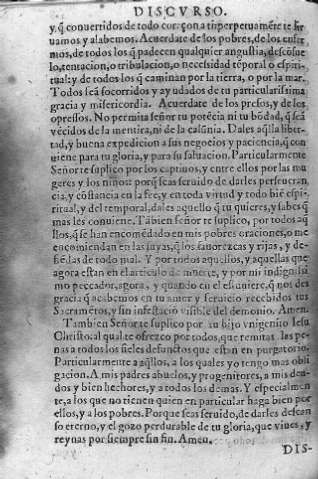 DISCVRSO.
y, q̃ conuertidos de todo corçona ti perpetuamẽte te sir
uamos y alabemos. Acuerdate de los pobres, de los enfer
mos, de todos los q̃ padecen qualquier angustia, descõsue
lo, tentacion, o tribulacion, o necessidad tẽporal o espiri-
tual: y de todos los q̃ caminan por la tierra, o por la mar.
Todos seã socorridos y ayudados de tu particularissima
gracia y misericordia. Acuerdate de los presos, y de los
opressos. No permita señor tu potẽcia ni tu bõdad, q̃ seã
vẽcidos de la mentira, ni de la calũnia. Dales aq̃lla liber-
tad, y buena expedicion a sus negocios y paciencia, q̃ con
uiene para tu gloria, y para su saluacion. Particularmente
Señor te suplico por los captiuos, y entre ellos por las mu
geres y los niños: porq̃ seas seruido de darles perseueran
cia, y cõstancia en la fee, y en toda virtud y todo biẽ espi-
ritual, y del temporal, dales aquello q̃ tu quieres, y sabes q̃
mas les conuiene. Tãbien señor te suplico, por todos aq̃
llos, q̃ se han encomẽdado en mis pobres oraciones, o me
encomiendan en las suyas, q̃ los fauorezcas y rijas, y de-
fiẽdas de todo mal. Y por todos aquellos, y aquellas que
agora estan en el articulo de muerte, y por mi indignissi
mo peccador, agora, y quando en el estuuiere, q̃ nos des
gracia q̃ acabemos en tu amor y seruicio recebidos tus
Sacramẽtos, y sin infestacion visible del demonio. Amen.
Tambien Señor te suplico por tu hijo vnigenito Iesu
Christo: al qual te ofrezco por todos, que remitas las pe-
nas a todos los fieles defunctos que estan en purgatorio.
Particularmente a aq̃llos, a los quales yo tengo mas obli
gacion. A mis padres abuelos, y progenitores, a mis deu-
dos y bien hechores, y a todos los demas. Y especialmen
te, a los que no tienen quien en particular haga bien por
ellos, y a los pobres. Porque seas seruido, de darles descan
so eterno, y el gozo perdurable de tu gloria, que viues, y
reynas por siempre sin fin. Amen.
DIS-